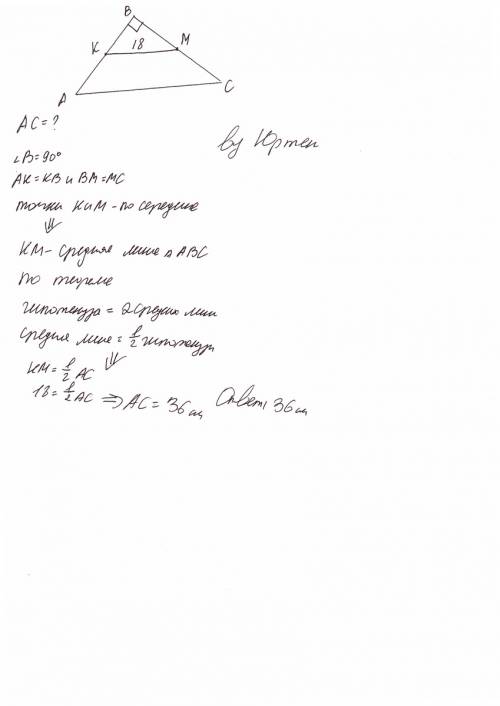 B
K 18 M
A C
AC = ?
by Юртен
∠B=90°
AK=KB и BM=MC
точки K и M - по середине
⇓
KM - средняя линия △ ABC
по теореме
гипотенуза = 2 средних линии
средняя линия = 1/2 гипотенузы
⇓
KM = 1/2 AC
18 = 1/2 AC ⇒ AC = 36 см Ответ: 36 см